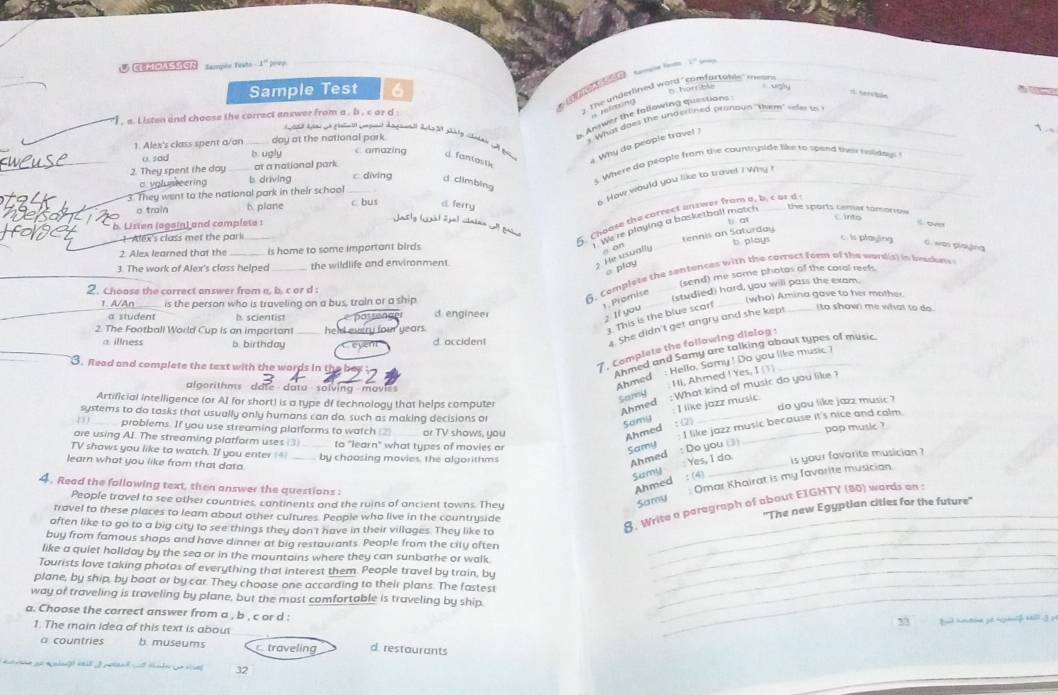 EL-MOASSER Sample Tests - 1st prep.
Sample Test 6
1. a. Listen and choose the correct answer from a, b, c or d :
1. Alex's class spent a/an ______ day at the national park.
a. sad b. ugly c. amazing d. fantastic
2. They spent the day ______ at a national park.
a. volunteering b. driving c. diving d. climbing
3. They went to the national park in their school ______
a. train b. plane c. bus d. ferry
b. Listen (again) and complete :
1. Alex's class met the park ______
2. Alex learned that the ______ is home to some important birds.
3. The work of Alex's class helped ______ the wildlife and environment.
2. Choose the correct answer from a, b, c or d :
1. A/An ______ is the person who is traveling on a bus, train or a ship.
a. student b. scientist c. passenger d. engineer
2. The Football World Cup is an important ______ held every four years.
a. illness b. birthday c. event d. accident
3. Read and complete the text with the words in the box :
algorithms - date - data - solving - movies
Artificial Intelligence (or AI for short) is a type of technology that helps computer
systems to do tasks that usually only humans can do, such as making decisions or
(1) ______ problems. If you use streaming platforms to watch (2) ______ or TV shows, you
are using AI. The streaming platform uses (3) ______ to "learn" what types of movies or
TV shows you like to watch. If you enter (4) ______ by choosing movies, the algorithms
learn what you like from that data.
4. Read the following text, then answer the questions :
People travel to see other countries, continents and the ruins of ancient towns. They
travel to these places to learn about other cultures. People who live in the countryside
often like to go to a big city to see things they don't have in their villages. They like to
buy from famous shops and have dinner at big restaurants. People from the city often
like a quiet holiday by the sea or in the mountains where they can sunbathe or walk.
Tourists love taking photos of everything that interest them. People travel by train, by
plane, by ship, by boat or by car. They choose one according to their plans. The fastest
way of traveling is traveling by plane, but the most comfortable is traveling by ship.
a. Choose the correct answer from a , b , c or d :
1. The main idea of this text is about ______
a. countries b. museums c. traveling d. restaurants
32
2. The underlined word "comfortable" means ______
a. relaxing b. horrible c. ugly d. terrible
b. Answer the following questions :
3. What does the underlined pronoun "them" refer to ?
4. Why do people travel ?
5. Where do people from the countryside like to spend their holidays ?
6. How would you like to travel ? Why ?
5. Choose the correct answer from a, b, c or d :
1. We're playing a basketball match ______ the sports center tomorrow.
a. on b. at c. into d. over
2. He usually ______ tennis on Saturday.
a. play b. plays c. is playing d. was playing
6. Complete the sentences with the correct form of the word(s) in brackets :
1. Promise ______ (send) me some photos of the coral reefs.
2. If you ______ (studied) hard, you will pass the exam.
3. This is the blue scarf ______ (who) Amina gave to her mother.
4. She didn't get angry and she kept ______ (to show) me what to do.
7. Complete the following dialog :
Ahmed and Samy are talking about types of music.
Ahmed : Hello, Samy ! Do you like music ?
Samy : Hi, Ahmed ! Yes, I (1) ______
Ahmed : What kind of music do you like ?
Samy : I like jazz music.
Ahmed : (2) ______ do you like jazz music ?
Samy : I like jazz music because it's nice and calm.
Ahmed : Do you (3) ______ pop music ?
Samy : Yes, I do.
Ahmed : (4) ______ is your favorite musician ?
Samy : Omar Khairat is my favorite musician.
8. Write a paragraph of about EIGHTY (80) words on :
"The new Egyptian cities for the future"
33